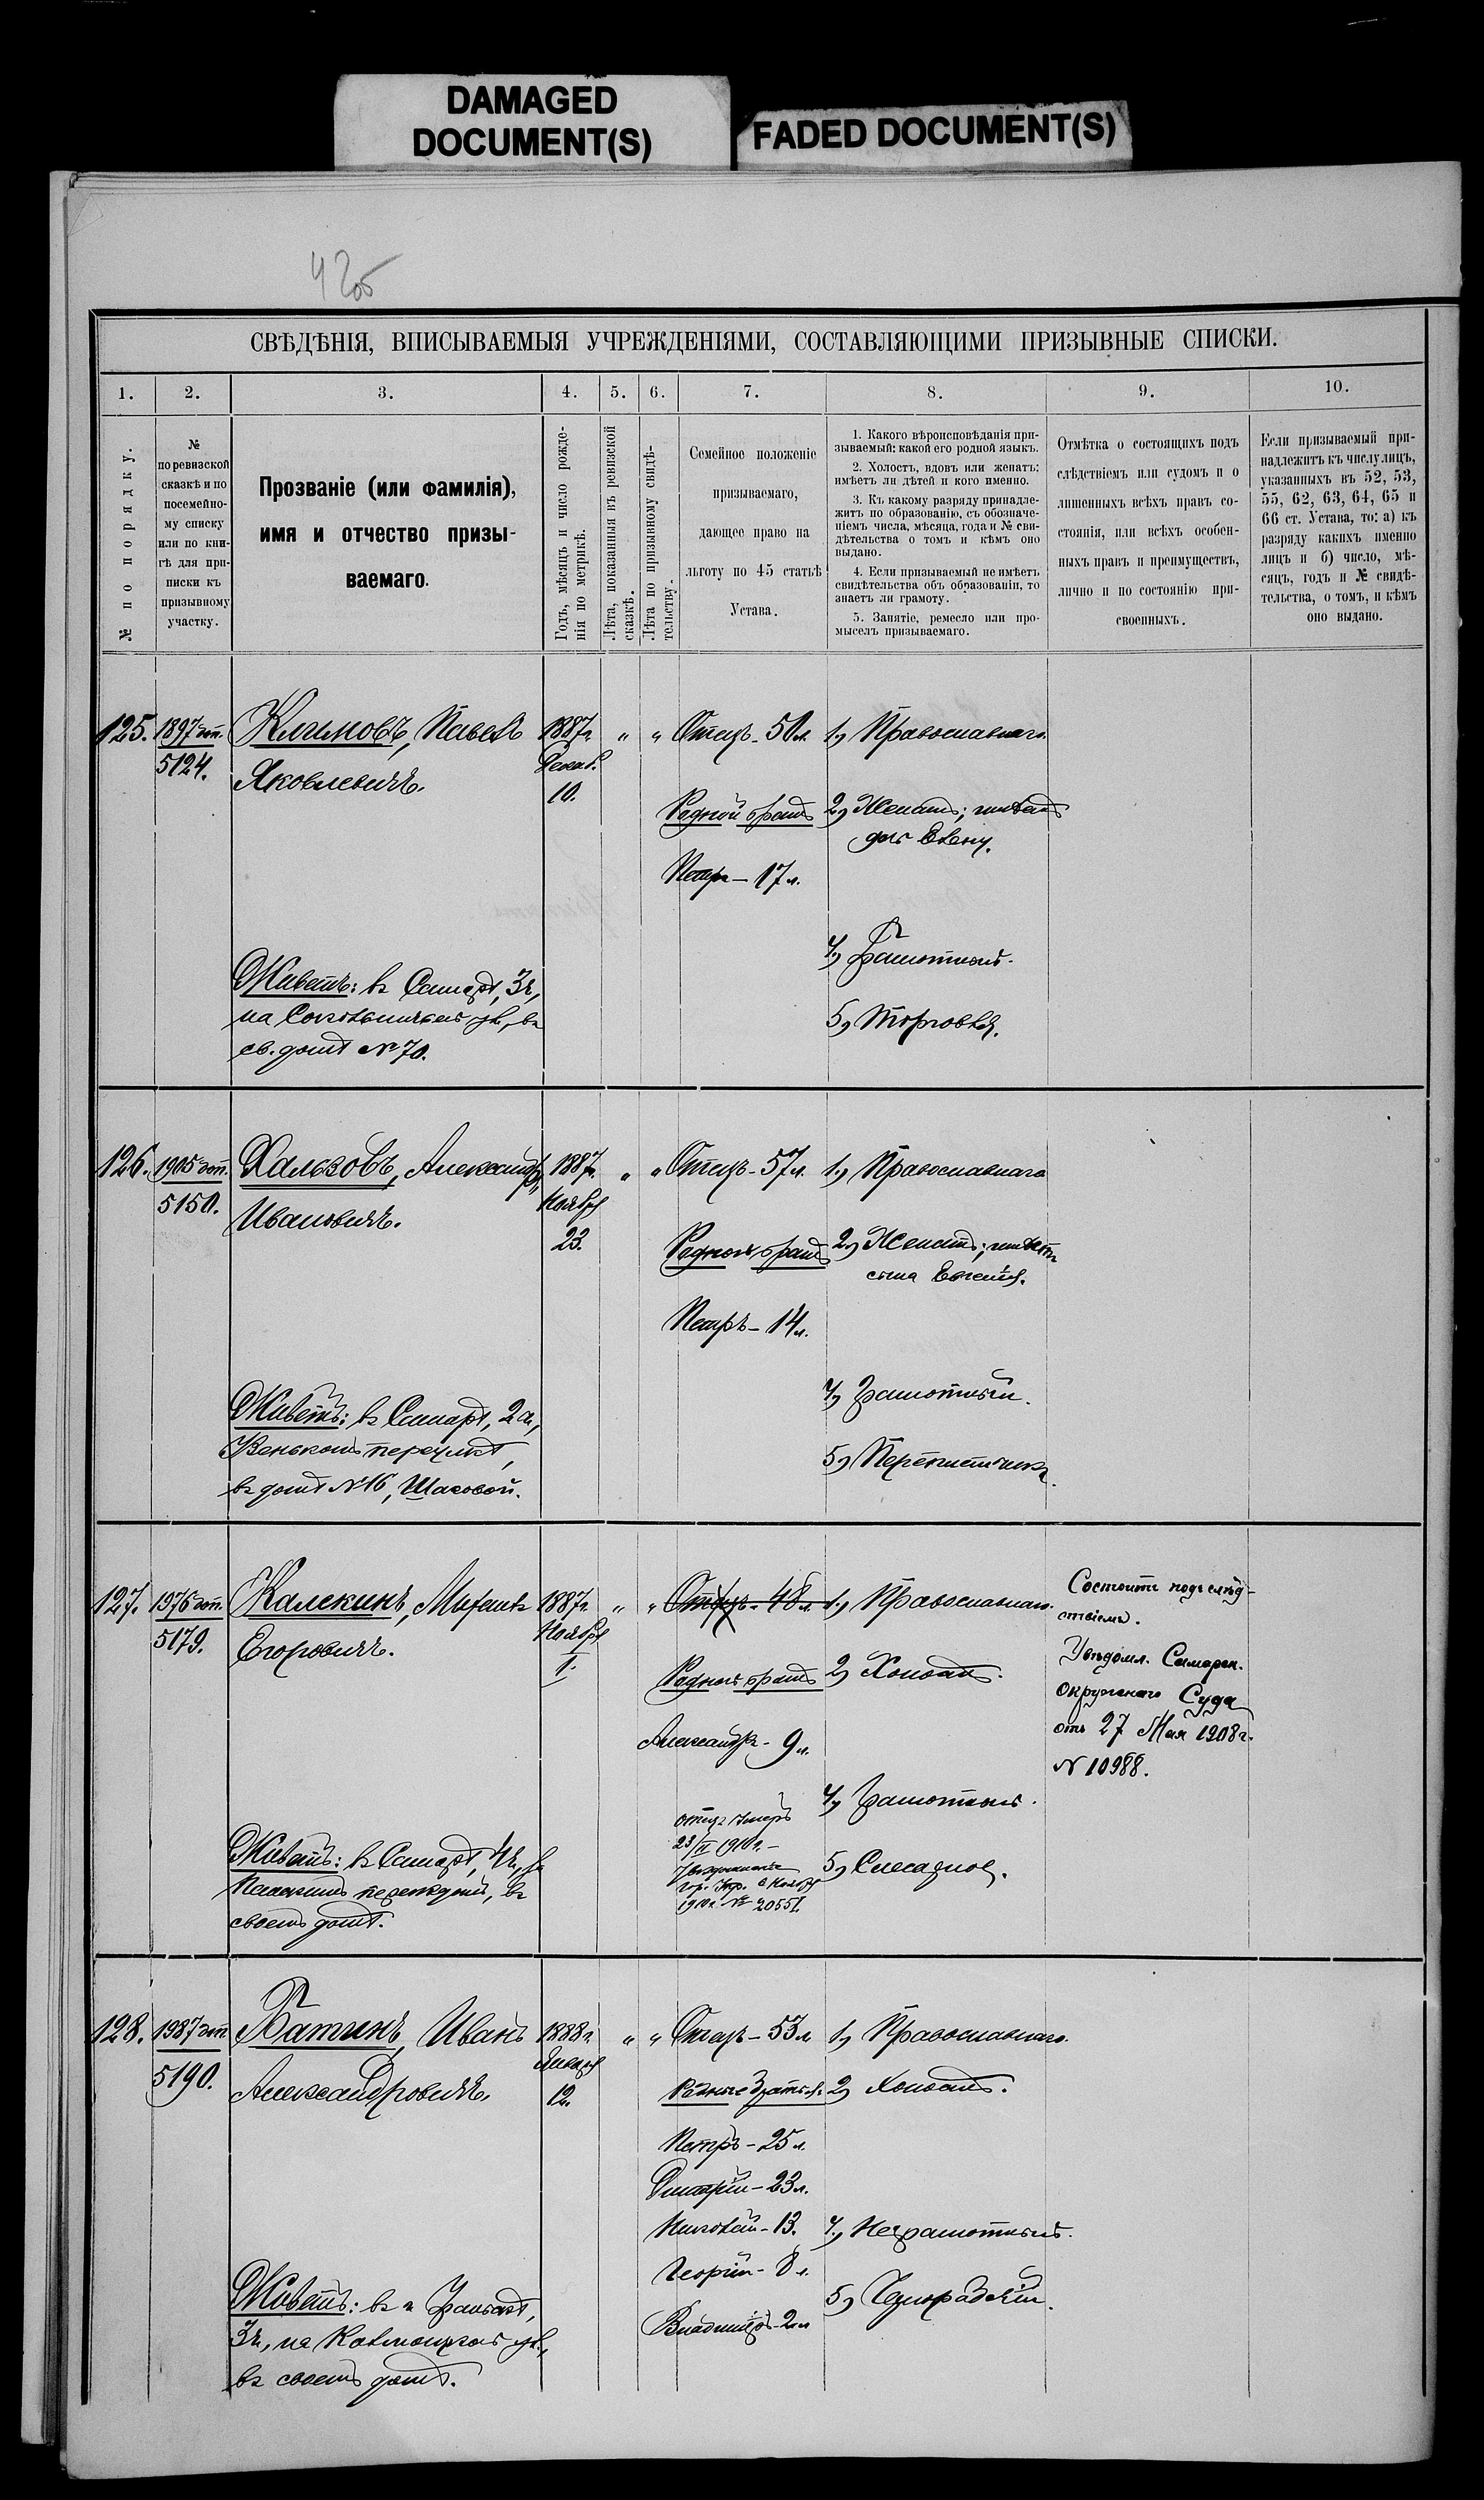 DAMAGED
DOCUMENT(S)
FADED DOCUMENT(S)
СВѢДѢНІЯ, ВПИСЫВАЕМЫЯ УЧРЕЖДЕНІЯМИ, СОСТАВЛЯЮЩИМИ ПРИЗЫВНЫЕ СПИСКИ.
1. 2. 3. 4. 5. 6. 7. 8. 9. 10.
№ по порядку.
№
по ревизской
сказкѣ и по
посемейно-
му списку
или по кни-
гѣ для при-
писки къ
призывному
участку.
Прозваніе (или фамилія),
имя и отчество призы-
ваемаго.
Годъ, мѣсяцъ и число рожде-
нія по метрикѣ.
Лѣта, показанныя въ ревизской
сказкѣ.
Лѣта по призывному свидѣ-
тельству.
Семейное положеніе
призываемаго,
дающее право на
льготу по 45 статьѣ
Устава.
1. Какого вѣроисповѣданія при-
зываемый; какой его родной языкъ.
2. Холостъ, вдовъ или женатъ;
имѣетъ ли дѣтей и кого именно.
3. Къ какому разряду принадле-
житъ по образованію, съ обозначе-
ніемъ числа, мѣсяца, года и № сви-
дѣтельства о томъ и кѣмъ оно
выдано.
4. Если призываемый не имѣетъ
свидѣтельства объ образованіи, то
знаетъ ли грамоту.
5. Занятіе, ремесло или про-
мыселъ призываемаго.
Отмѣтка о состоящихъ подъ
слѣдствіемъ или судомъ и о
лишенныхъ всѣхъ правъ со-
стоянія, или всѣхъ особен-
ныхъ правъ и преимуществъ,
лично и по состоянію при-
своенныхъ.
Если призываемый при-
надлежитъ къ числу лицъ,
указанныхъ въ 52, 53,
55, 62, 63, 64, 65 и
66 ст. Устава, то: а) къ
разряду какихъ именно
лицъ и б) число, мѣ-
сяцъ, годъ и № свидѣ-
тельства, о томъ, и кѣмъ
оно выдано.
125.
1897
5124.
Климовъ, Павелъ
Яковлевичъ.
Живетъ: въ Самарѣ, 3ч,
на
св. домѣ № 70.
1887г.
Декаб.
10.
" "
Отецъ - 50л.
Родной братъ
Петръ - 17л.
1, Православнаго
2, Женатъ; имѣетъ
дочь Елену.
4, Грамотный.
5, Торговля.
126.
1905
5150.
Хальзовъ, Александръ
Ивановичъ.
Живетъ: въ Самарѣ, 2ч,
переулкѣ,
въ домѣ №16, Шаговой.
1887г.
Ноября
23.
" "
Отецъ - 57л.
Родной братъ
Петръ - 14л.
1, Православнаго
2, Женатъ; имѣетъ
сына Евгенія.
4, Грамотный.
5, Переписчикъ.
127.
1976
5179.
Калекинъ,
Егоровичъ.
Живетъ: въ Самарѣ, 4ч,
въ
своемъ домѣ.
1887г.
Ноября
1.
" "
Отецъ - 48л.
Родной братъ
Александръ - 9л.
отецъ умеръ
23/II 1910г. -
гор. Упр. 6 Ноября
1910г. № 20551.
1, Православнаго.
2, Холостъ.
4, Грамотный.
5, Слесарное.
Состоитъ подъ слѣд-
ствіемъ.
Увѣдомл. Самарск.
Окружнаго Суда
отъ 27 Мая 1908г.
№ 10988.
128.
1987
5190.
Батинъ, Иванъ
Александровичъ.
Живетъ: въ г.
3ч, на
въ своемъ домѣ.
1888г.
Января
12.
" "
Отецъ - 53л
Родные братья:
Петръ - 25л.
Дмитрій - 23л.
Николай - 13.
Георгій - 8л.
Владиміръ - 2л
1, Православнаго.
2, Холостъ.
4, Неграмотный.
5, Чернорабочій.